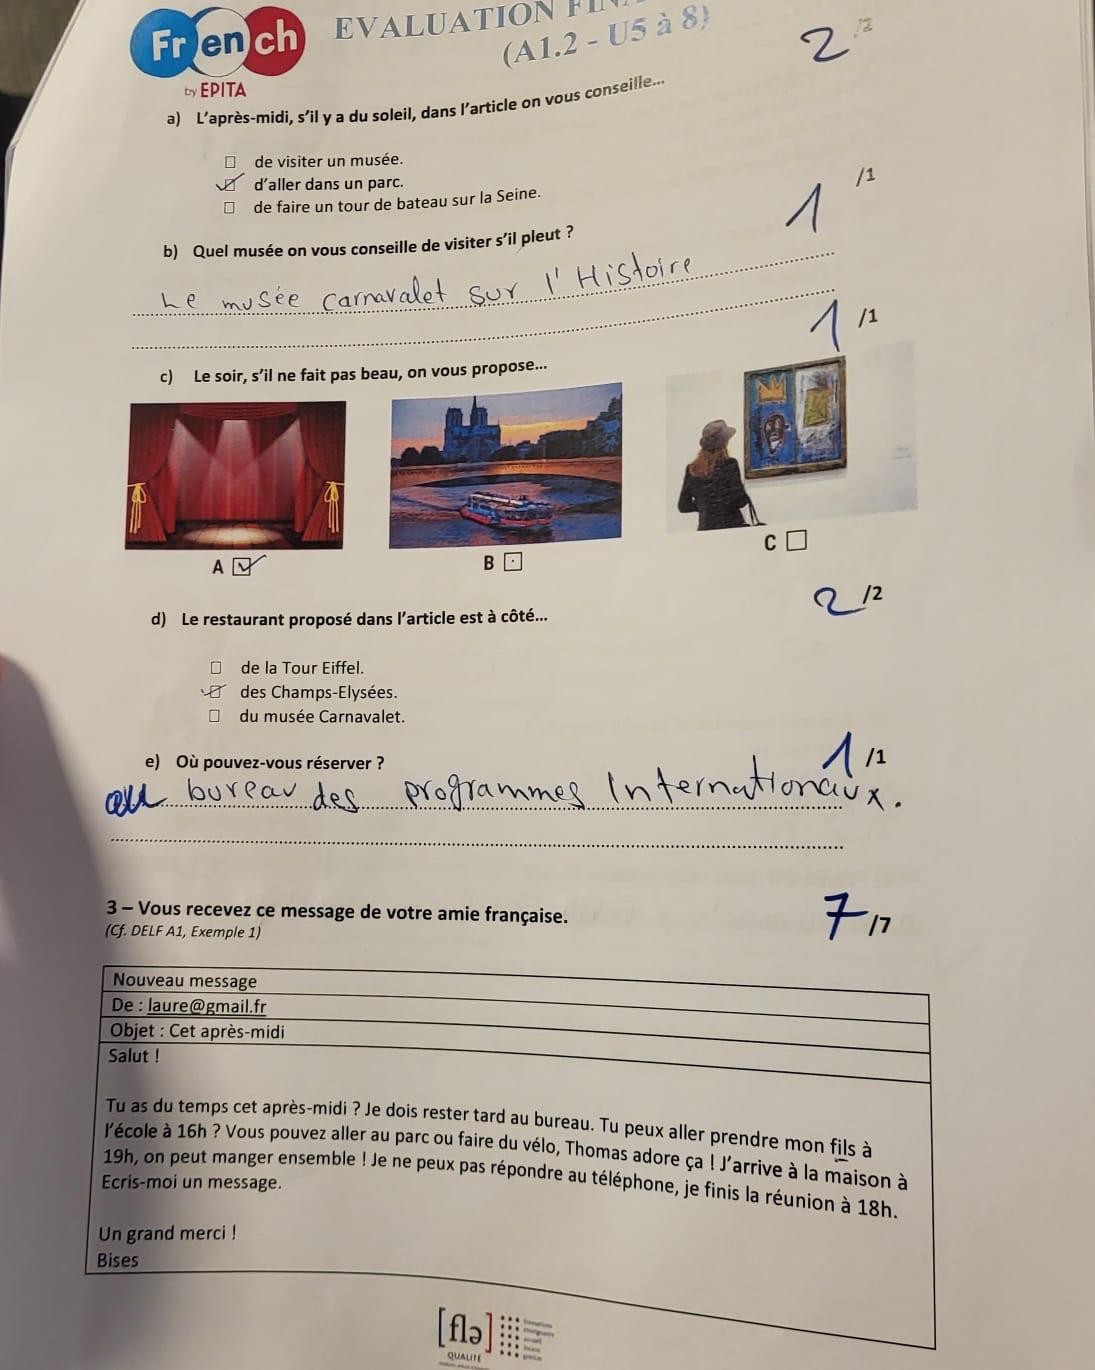 French
by EPITA
EVALUATION
(A1.2 - U5 à 8)
2 /2
a) L'après-midi, s'il y a du soleil, dans l'article on vous conseille...
de visiter un musée.
d'aller dans un parc.
de faire un tour de bateau sur la Seine.
1 /1
b) Quel musée on vous conseille de visiter s'il pleut ?
Le musée carnavalet sur l'Histoire
1 /1
c) Le soir, s'il ne fait pas beau, on vous propose...
A B C
2 /2
d) Le restaurant proposé dans l'article est à côté...
de la Tour Eiffel.
des Champs-Elysées.
du musée Carnavalet.
1 /1
e) Où pouvez-vous réserver ?
au bureau des programmes Internationaux.
3 – Vous recevez ce message de votre amie française.
7 /7
(Cf. DELF A1, Exemple 1)
Nouveau message
De : laure@gmail.fr
Objet : Cet après-midi
Salut !
Tu as du temps cet après-midi ? Je dois rester tard au bureau. Tu peux aller prendre mon fils à
l'école à 16h ? Vous pouvez aller au parc ou faire du vélo, Thomas adore ça ! J'arrive à la maison à
19h, on peut manger ensemble ! Je ne peux pas répondre au téléphone, je finis la réunion à 18h.
Ecris-moi un message.
Un grand merci !
Bises
[flə]
QUALITÉ